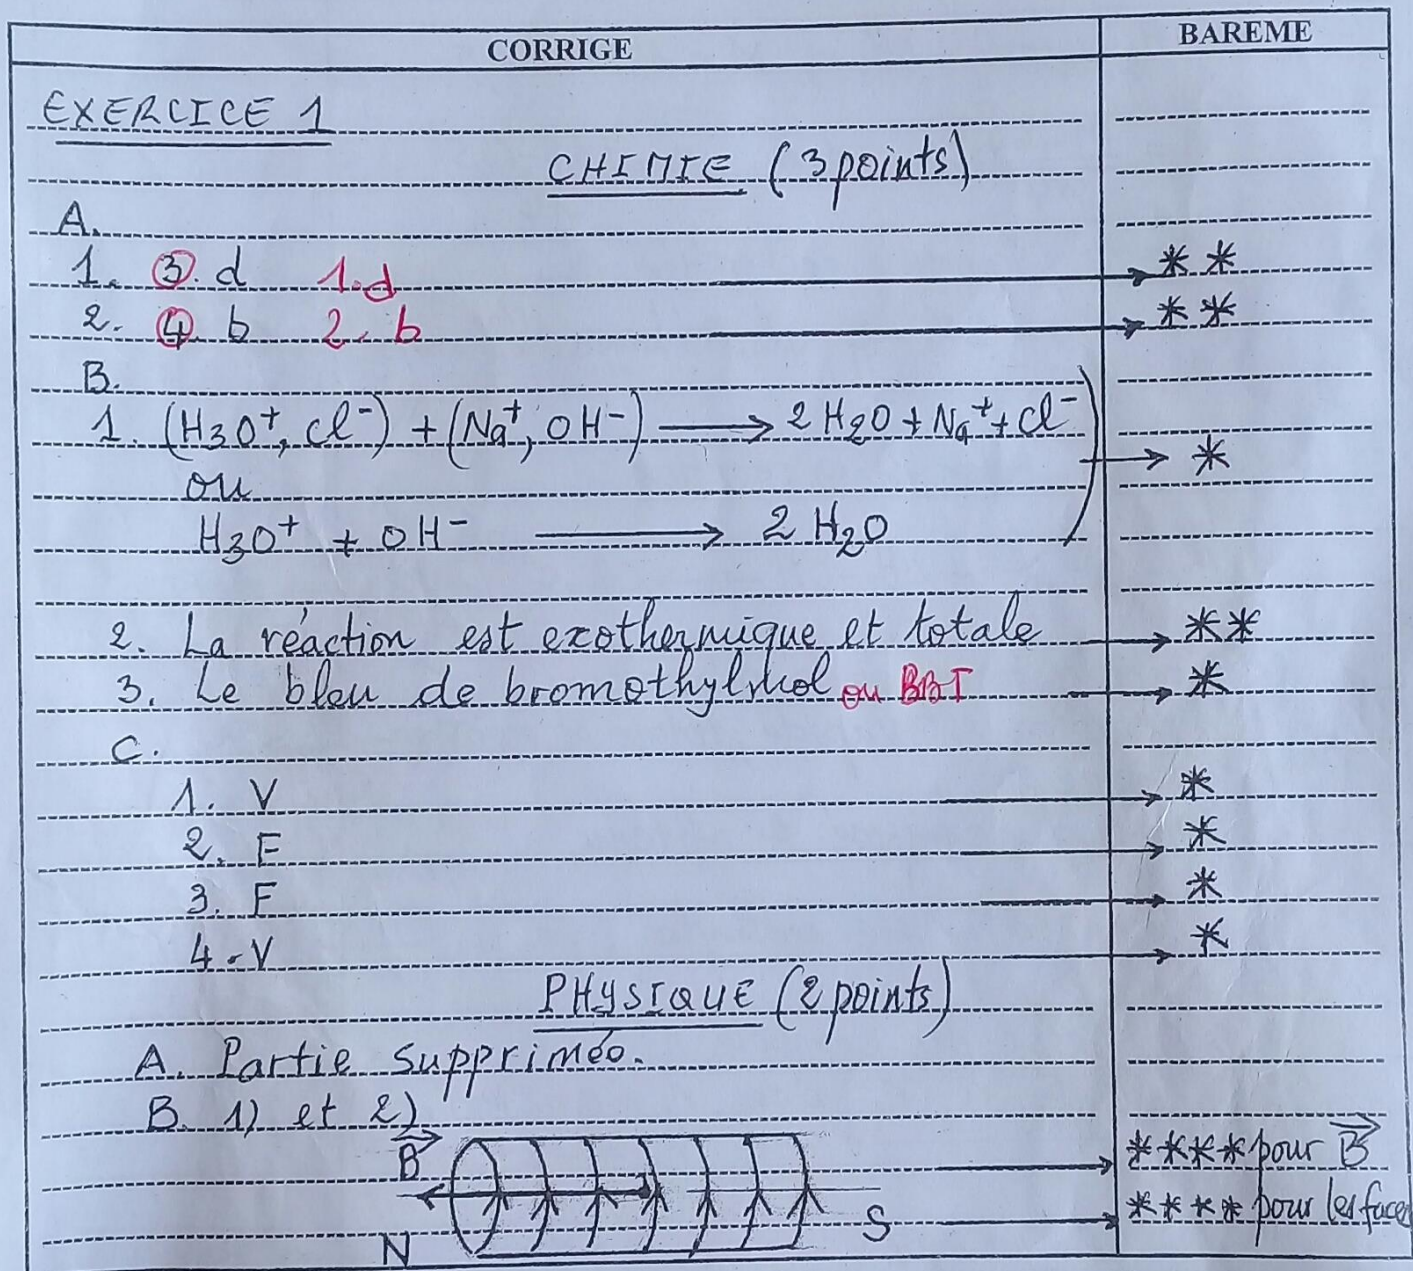 CORRIGE BAREME
EXERCICE 1
CHIMIE (3 points)
A.
1. ③. d 1.d **
2. ④. b 2. b **
B.
1. (H3O⁺, Cl⁻) + (Na⁺, OH⁻) ⟶ 2 H2O + Na⁺ + Cl⁻
*
ou
H3O⁺ + OH⁻ ⟶ 2 H2O
2. La réaction est exothermique et totale **
3. Le bleu de ou BBT *
C.
1. V *
2. F *
3. F *
4. V *
PHYSIQUE (2 points)
A. Partie supprimée.
B. 1) et 2)
B⃗ **** pour B⃗
S **** pour les faces
N